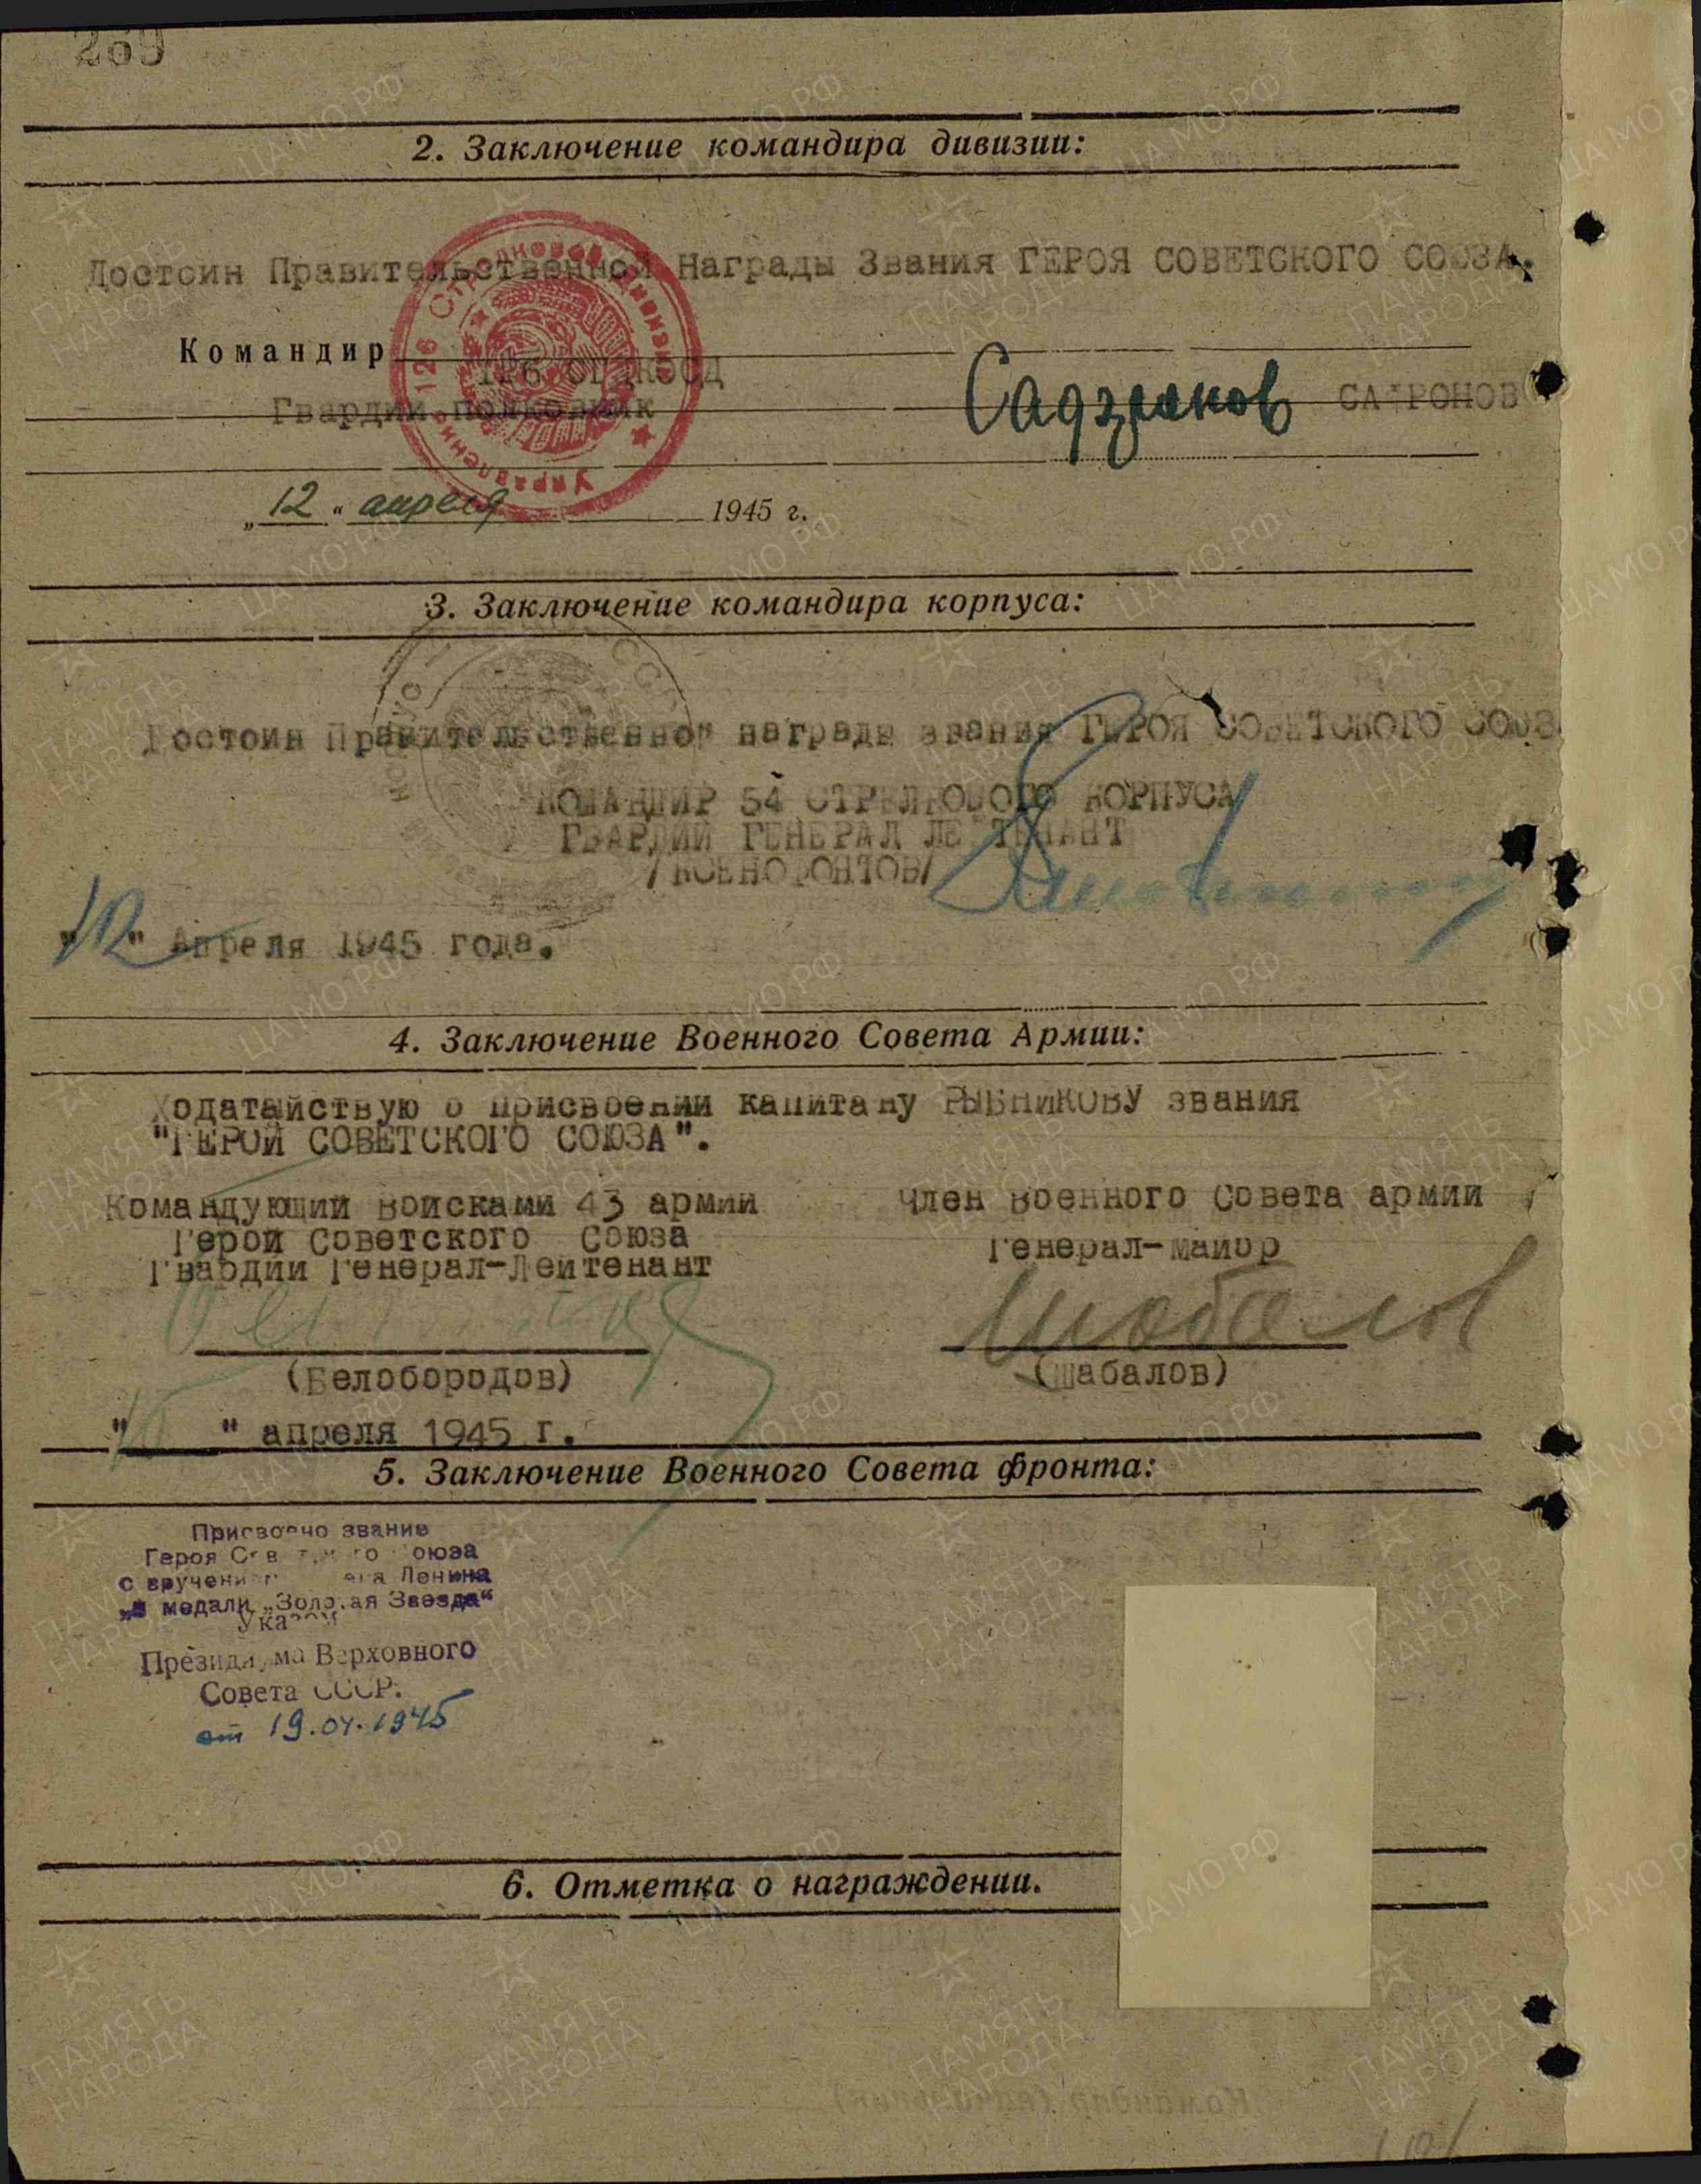 269
2. Заключение командира дивизии:
Достоин Правительственной Награды Звания ГЕРОЯ СОВЕТСКОГО СОЮЗА.
Командир 126 СГ ДКОСД
Гвардии полковник САФРОНОВ
"12" апреля 1945 г.
3. Заключение командира корпуса:
Достоин Правительственной награды звания ГЕРОЯ СОВЕТСКОГО СОЮЗ
КОМАНДИР 54 СТРЕЛКОВОГО КОРПУСА
ГВАРДИИ ГЕНЕРАЛ ЛЕЙТЕНАНТ
/КСЕНОФОНТОВ/
"12" Апреля 1945 года.
4. Заключение Военного Совета Армии:
Ходатайствую о присвоении капитану РЫБНИКОВУ звания
"ГЕРОЙ СОВЕТСКОГО СОЮЗА".
Командующий войсками 43 армии
Герой Советского Союза
Гвардии Генерал-Лейтенант
(Белобородов)
Член Военного Совета армии
Генерал-майор
Шабалов
(Шабалов)
" " апреля 1945 г.
5. Заключение Военного Совета фронта:
Присвоено звание
Героя Советского Союза
с вручением ордена Ленина
и медали „Золотая Звезда“
Указом
Президиума Верховного
Совета СССР.
от 19.04.1945
6. Отметка о награждении.